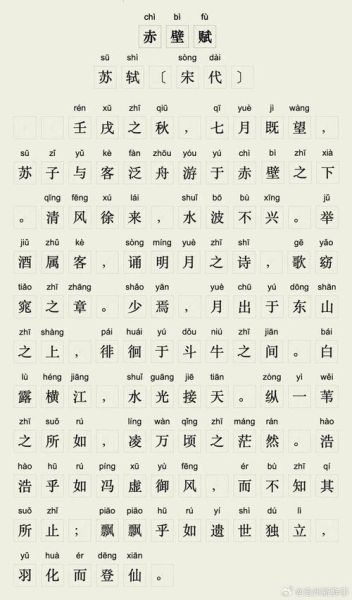 chì bì fù
赤壁赋
sū shì sòng dài
苏轼〔宋代〕
rén xū zhī qiū qī yuè jì wàng
壬戌之秋，七月既望，
sū zǐ yǔ kè fàn zhōu yóu yú chì bì zhī xià
苏子与客泛舟游于赤壁之下
qīng fēng xú lái shuǐ bō bù xīng jǔ
。清风徐来，水波不兴。举
jiǔ zhǔ kè sòng míng yuè zhī shī gē yǎo
酒属客，诵明月之诗，歌窈
tiǎo zhī zhāng shǎo yān yuè chū yú dōng shān
窕之章。少焉，月出于东山
zhī shàng pái huái yú dǒu niú zhī jiān bái
之上，徘徊于斗牛之间。白
lù héng jiāng shuǐ guāng jiē tiān zòng yì wěi
露横江，水光接天。纵一苇
zhī suǒ rú líng wàn qǐng zhī máng rán hào
之所如，凌万顷之茫然。浩
hào hū rú píng xū yù fēng ér bù zhī qí
浩乎如冯虚御风，而不知其
suǒ zhǐ piāo piāo hū rú yí shì dú lì
所止；飘飘乎如遗世独立，
yǔ huà ér dēng xiān
羽化而登仙。